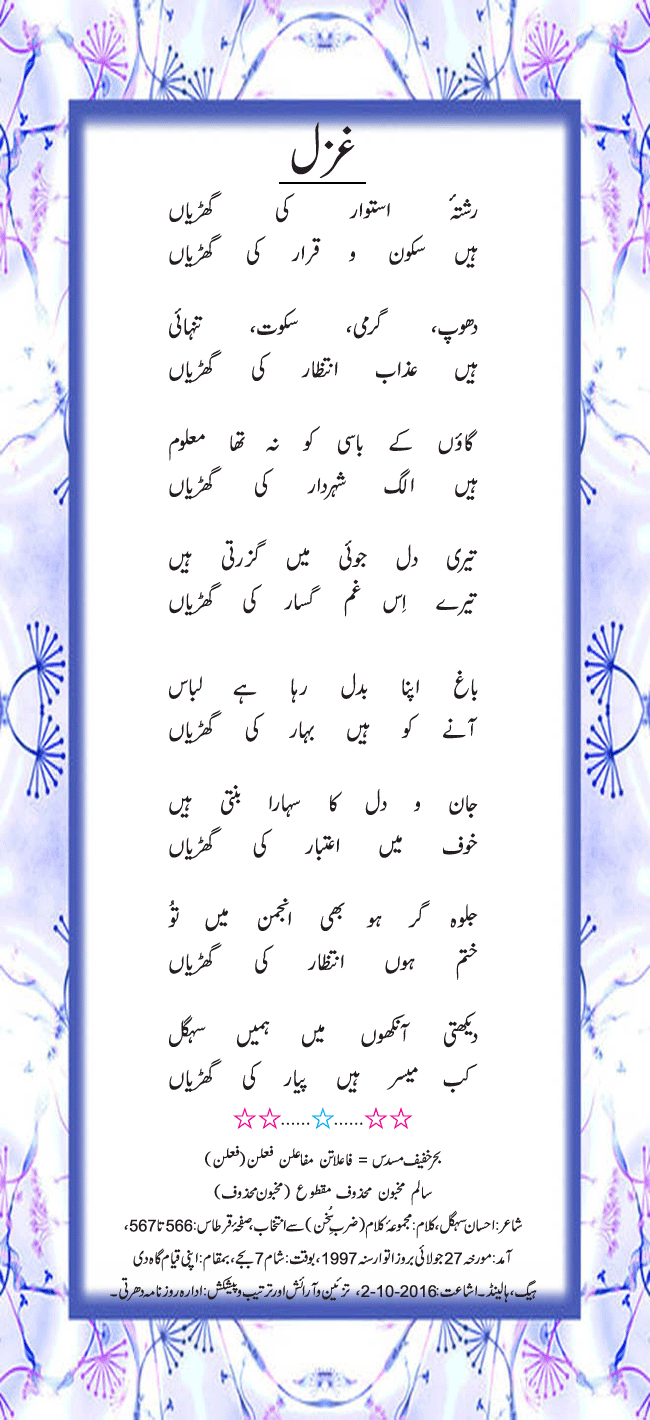 غزل
رشتۂ استوار کی گھڑیاں
ہیں سکون و قرار کی گھڑیاں
دھوپ، گرمی، سکوت، تنہائی
ہیں عذاب انتظار کی گھڑیاں
گاؤں کے باسی کو نہ تھا معلوم
ہیں الگ شہردار کی گھڑیاں
تیری دل جوئی میں گزرتی ہیں
تیرے اِس غم گسار کی گھڑیاں
باغ اپنا بدل رہا ہے لباس
آنے کو ہیں بہار کی گھڑیاں
جان و دل کا سہارا بنتی ہیں
خوف میں اعتبار کی گھڑیاں
جلوہ گر ہو بھی انجمن میں تُو
ختم ہوں انتظار کی گھڑیاں
دیکھتی آنکھوں میں ہمیں سہگل
کب میسر ہیں پیار کی گھڑیاں
☆☆......☆......☆☆
بحر خفیف مسدس = فاعلاتن مفاعلن فعلن (فعلن)
سالم مخبون محذوف مقطوع (مخبون محذوف)
شاعر: احسان سہگل، کلام: مجموعۂ کلام (ضربِ سُخن) سے انتخاب، صفحۂ قرطاس: 566 تا 567،
آمد: مورخہ 27 جولائی بروز اتوار سنہ 1997، بوقت: شام 7 بجے، بمقام: اپنی قیام گاہ دی
ہیگ، ہالینڈ۔ اشاعت: 2016-10-2، تزئین و آرائش اور ترتیب و پیشکش: ادارہ روزنامہ دھرتی۔